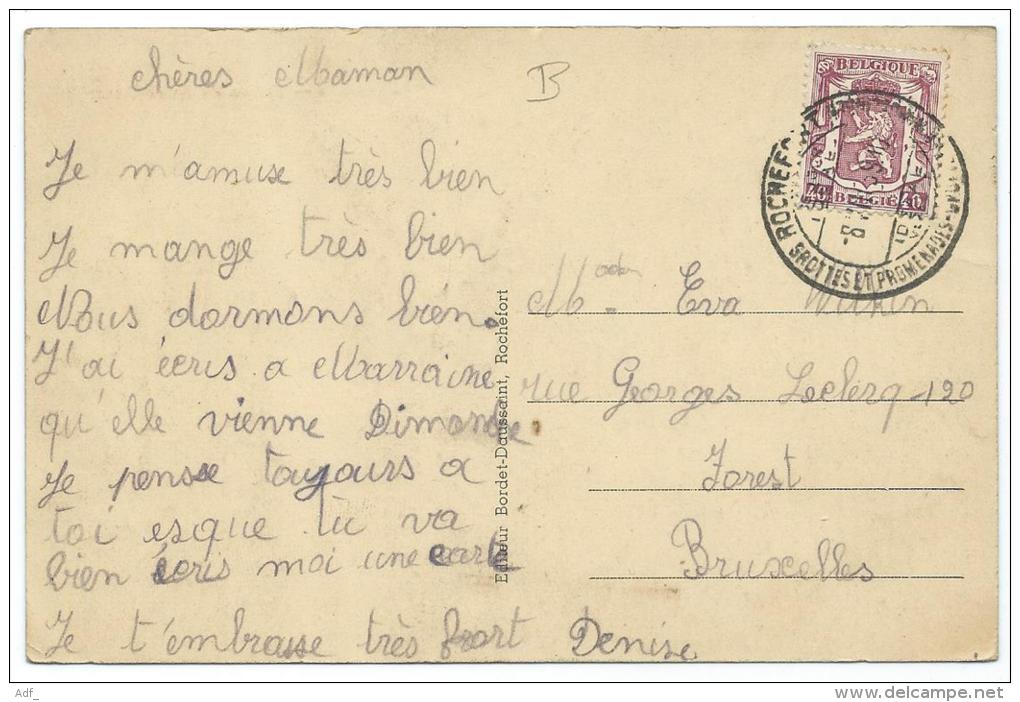 chères Maman
B
Je m'amuse très bien
Je mange très bien
Nous dormons bien.
J'ai écris a Marraine
qu'elle vienne Dimanche
Je pense toujours a
toi esque tu va
bien écris moi une carte
Je t'embrasse très fort Denise
Editeur Bordet-Daussaint, Rochefort
M Eva
rue Georges Leclerq 120
Forest
Bruxelles
BELGIQUE
BELGIË
ROCHEFORT
GROTTES ET PROMENADES
Adf_
www.delcampe.net